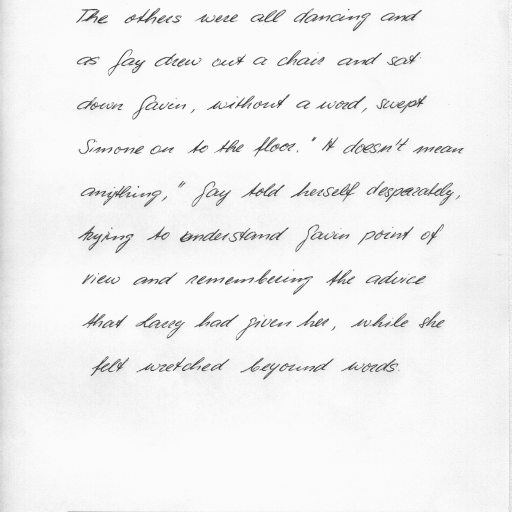 The others were all dancing and
as Gay drew out a chair and sat
down Gavin, without a word, swept
Simone on to the floor. " It doesn't mean
anything," Gay told herself desperately,
trying to understand Gavin point of
view and remembering the advice
that Larry had given her, while she
felt wretched beyound words.